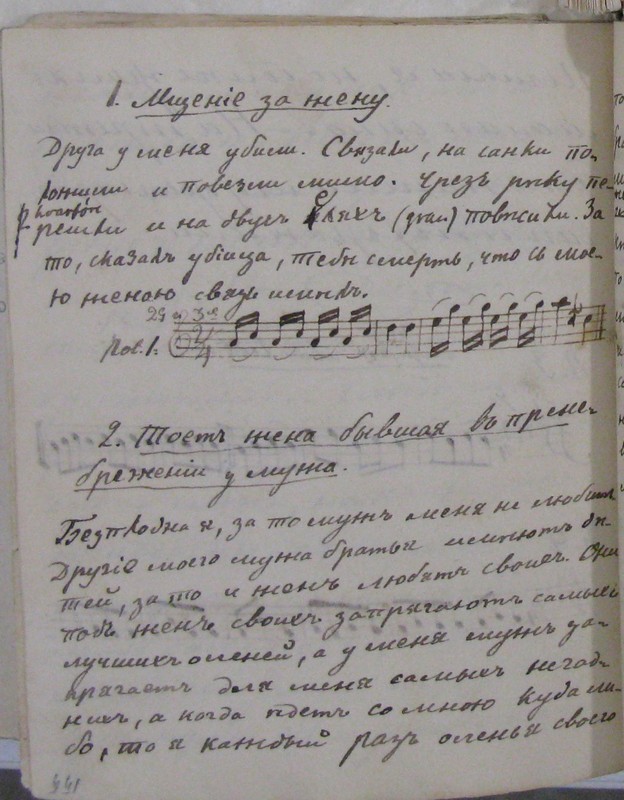 1. Мщеніе за жену.
Друга у меня убили. Связали, на санки по-
ложили и повезли мимо. Чрезъ рѣку пе-
решли и на двухъ (утан.) положили. За
то, сказалъ убійца, тебѣ смерть, что съ мое-
ю женою связь имѣлъ.
№ 1.
2. Поетъ жена бывшая въ прене-
бреженіи у мужа.
Безплодна я, за то мужъ меня не любитъ
Другіе моего мужа братья имѣютъ дѣ-
тей, за то и женъ любятъ своихъ. Они
женъ своихъ запрягаютъ самыхъ
лучшихъ оленей, а у меня мужъ за-
прягаетъ для меня самыхъ негод-
ныхъ, а когда ѣдетъ со мною куда ли-
бо, то я каждый разъ оленья своего